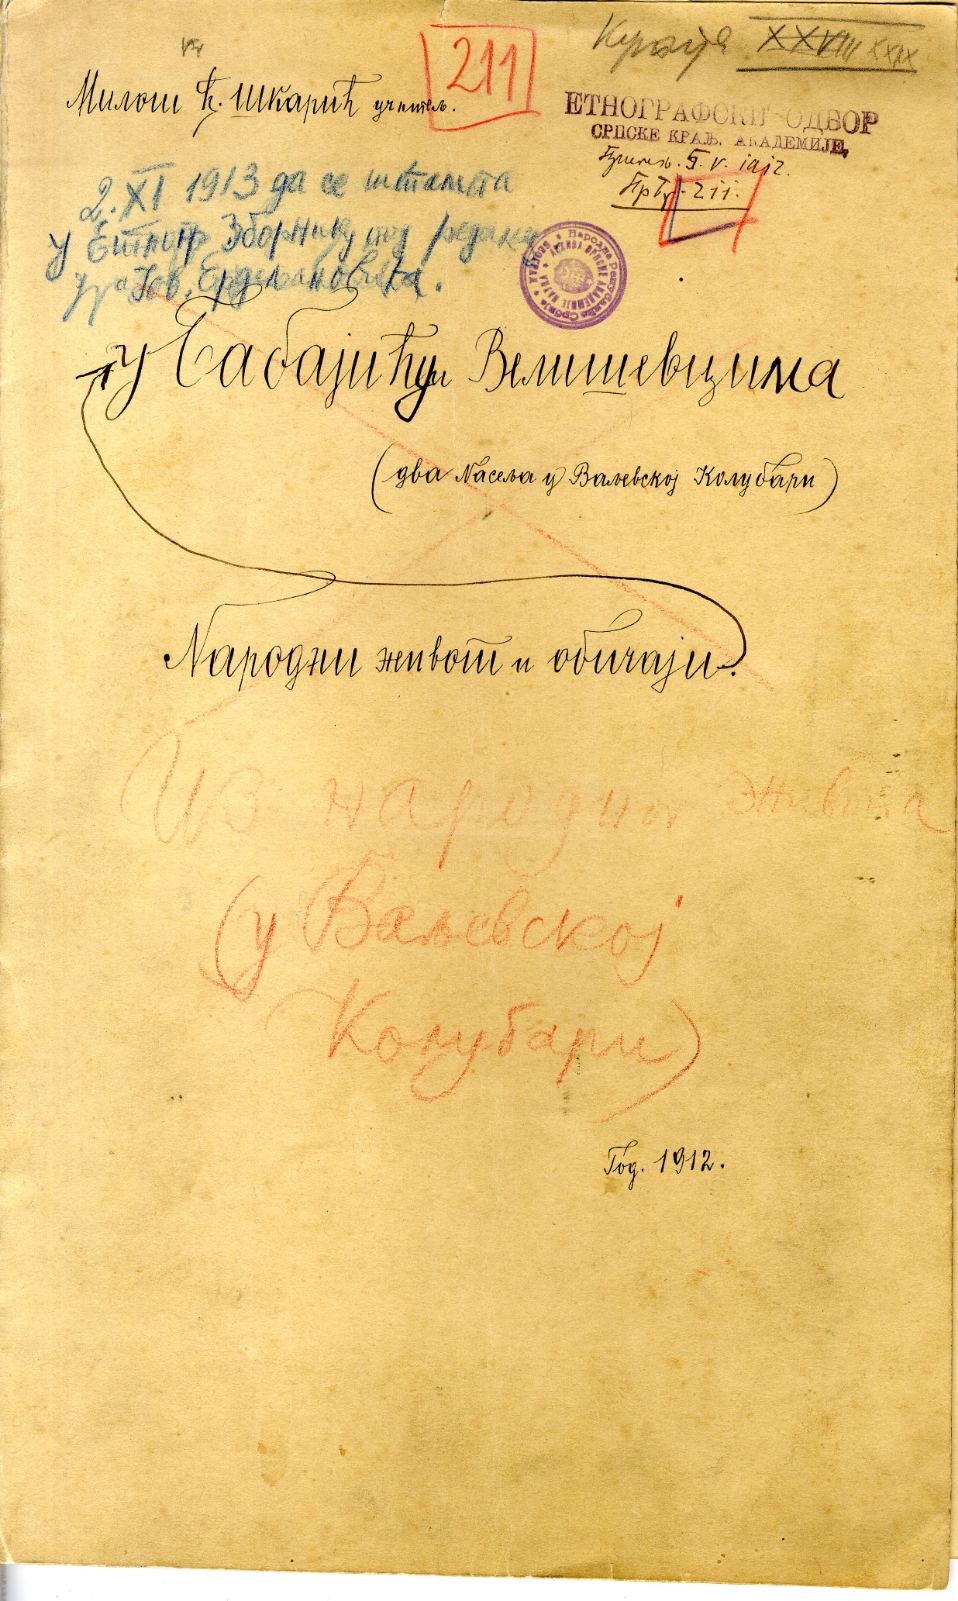 Милош Ђ. Шкарић учитељ.
211
XXVIII XXIX
ЕТНОГРАФСКИ ОДБОР
СРПСКЕ КРАЉ. АКАДЕМИЈЕ,
Бр. 211.
2. XI 1913 да се штампа
у Етногр Зборнику под
Јов. Ердељановића.
у Бабајићу и Велишевцима
(два насеља у Ваљевској Колубари)
Народни живот и обичаји.
Из народног живота
(у Ваљевској
Колубари)
Год. 1912.